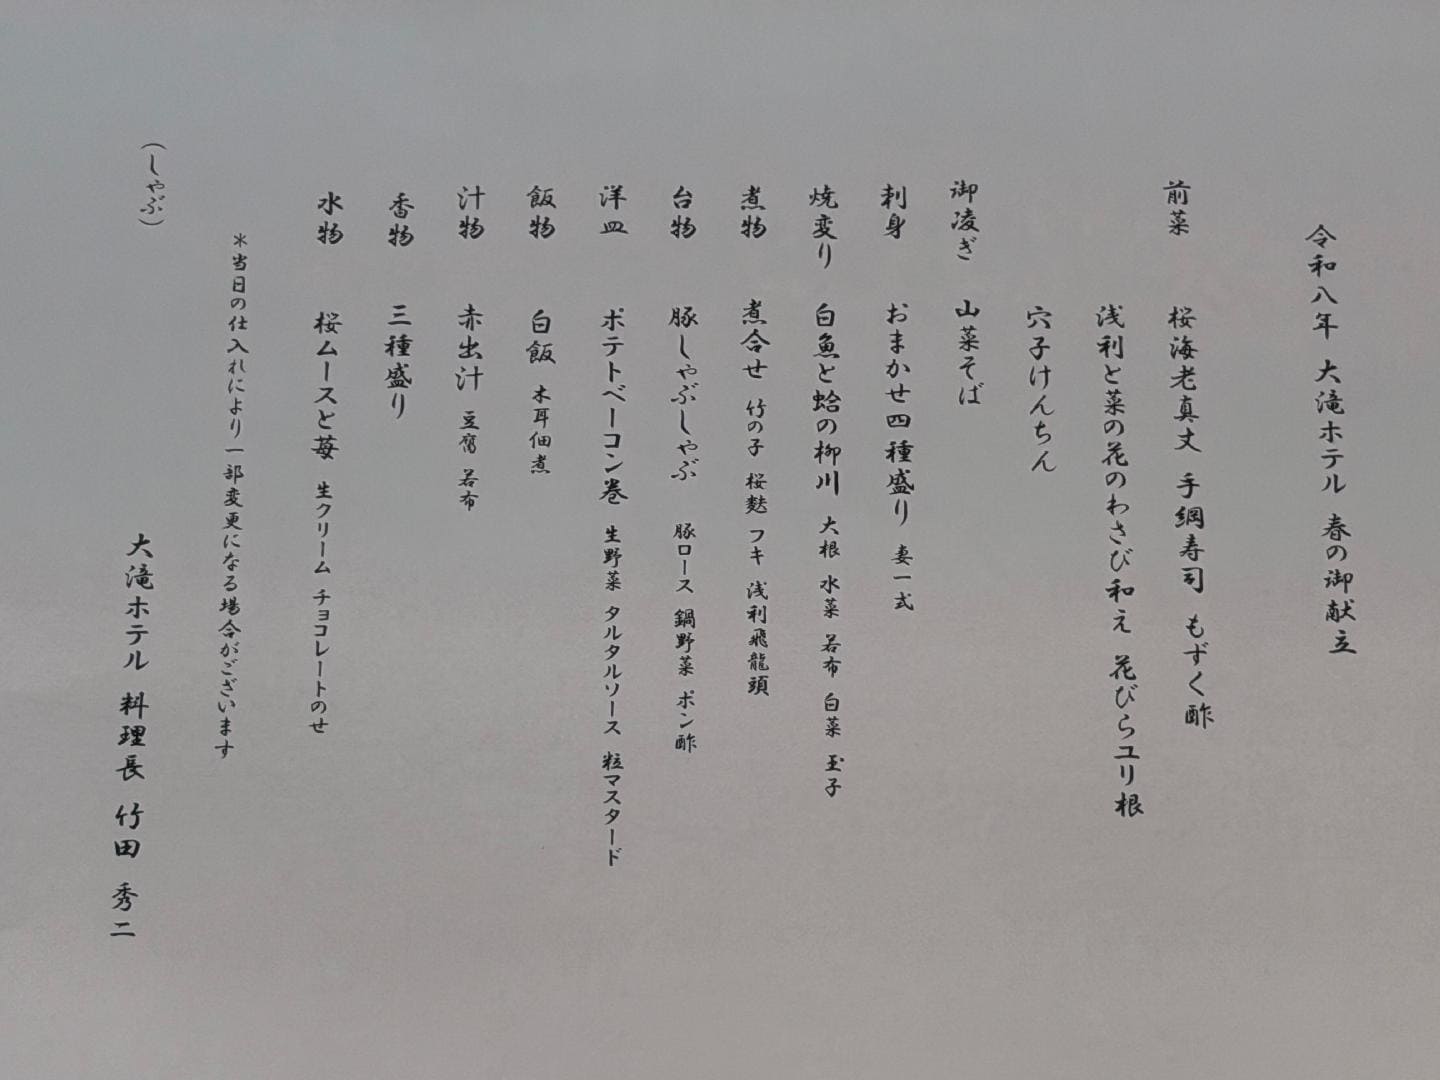 令和八年 大滝ホテル 春の御献立
前菜 桜海老真丈 手綱寿司 もずく酢
浅利と菜の花のわさび和え 花びらユリ根
穴子けんちん
御凌ぎ 山菜そば
刺身 おまかせ四種盛り 妻一式
焼変り 白魚と蛤の柳川 大根 水菜 若布 白菜 玉子
煮物 煮合せ 竹の子 桜麩 フキ 浅利飛龍頭
台物 豚しゃぶしゃぶ 豚ロース 鍋野菜 ポン酢
洋皿 ポテトベーコン巻 生野菜 タルタルソース 粒マスタード
飯物 白飯 木耳佃煮
汁物 赤出汁 豆腐 若布
香物 三種盛り
水物 桜ムースと苺 生クリーム チョコレートのせ
＊当日の仕入れにより一部変更になる場合がございます
(しゃぶ)
大滝ホテル 料理長 竹田 秀二